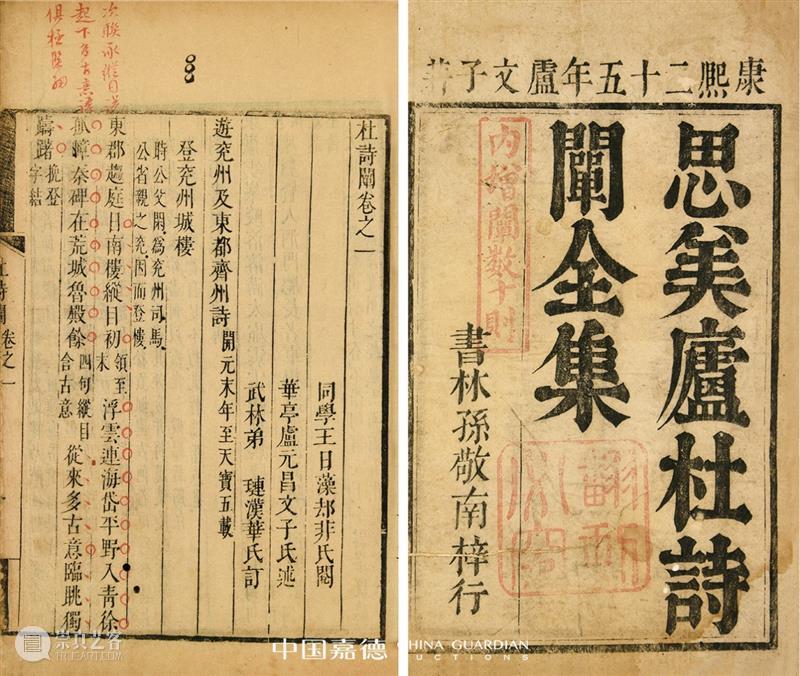 康熙二十五年盧文子
思美廬杜詩
闡全集
內增闡數十則
書林孫敬南梓行
次聯承縱目
起下多古意
俱極
杜詩闡卷之一
同學王日藻却非氏閱
華亭盧元昌文子氏述
武林弟 璉漢華氏訂
遊兖州及東都齊州詩 開元末年至天寶五載
登兖州城樓
時公父閑為兖州司馬
公省親之兖因而登樓
東郡趨庭日南樓縱目初 領至末 浮雲連海岱平野入青徐
孤嶂秦碑在荒城魯殿餘 四句縱目含古意 從來多古意臨眺獨
躊躇 挽登字結
杜詩闡 卷之一
崇真艺客
TRUEART.COM
中国嘉德 CHINA GUARDIAN
AUCTIONS